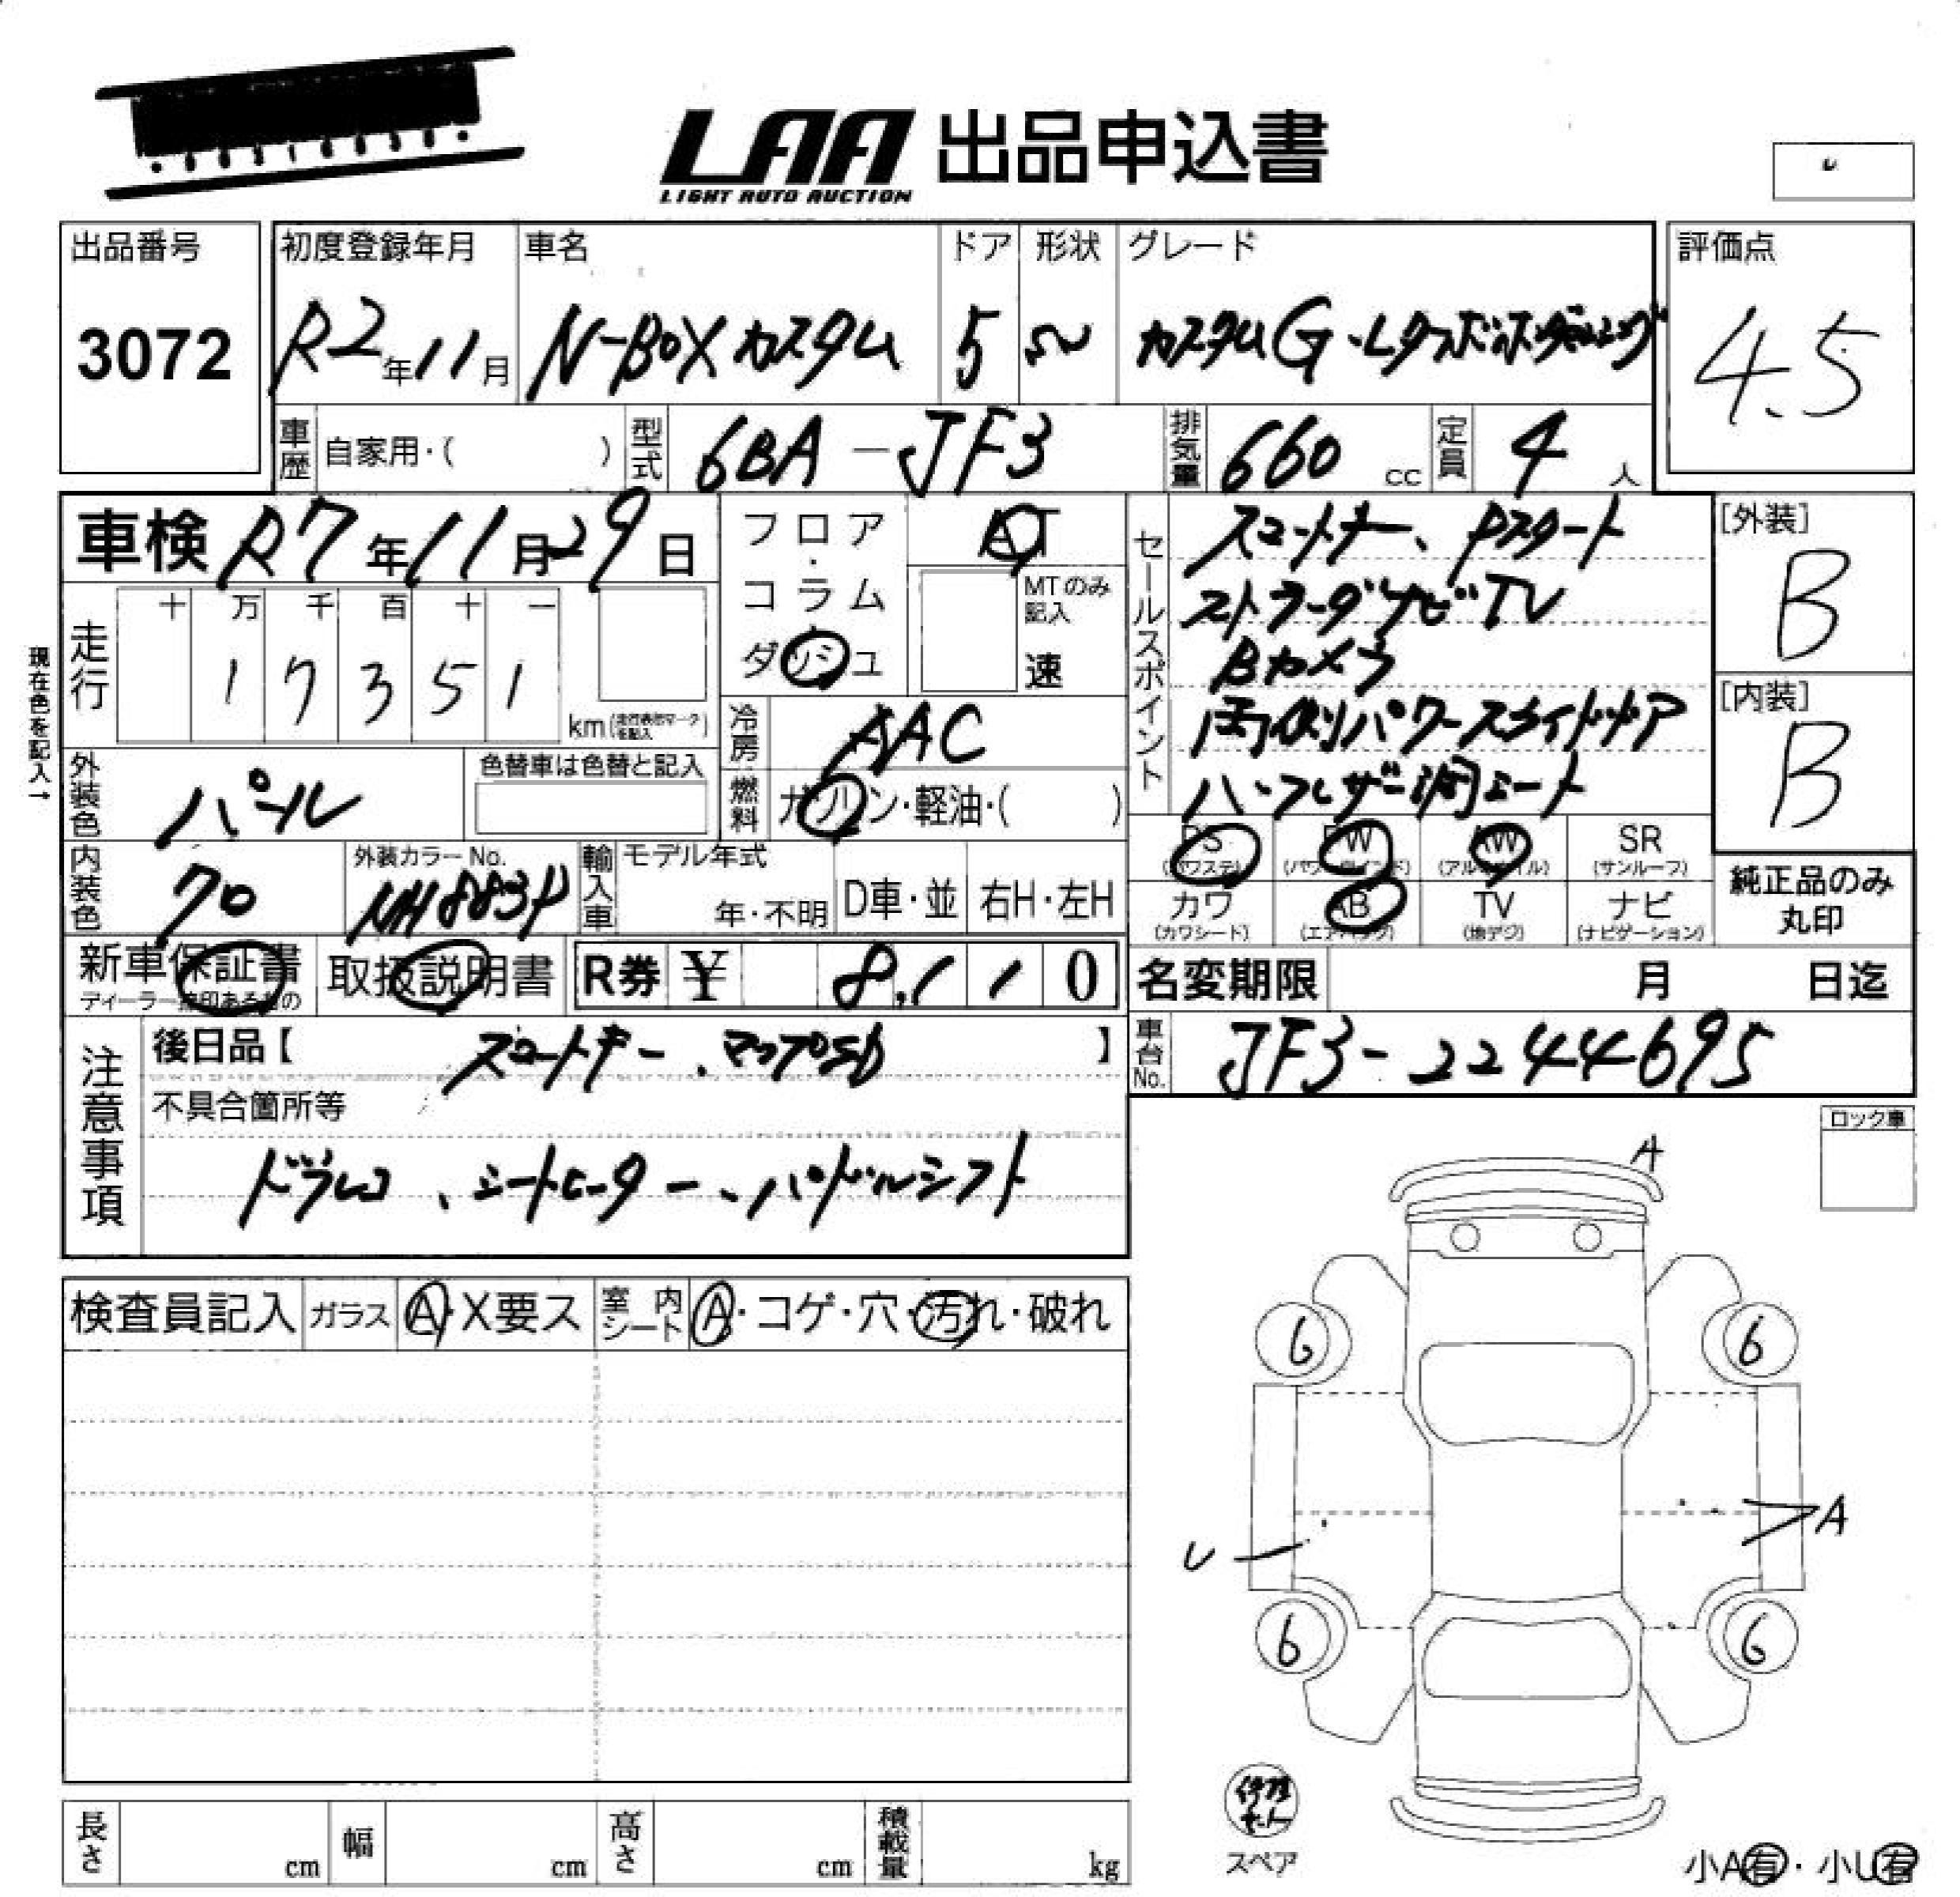 LAA 出品申込書
LIGHT AUTO AUCTION
出品番号
3072
初度登録年月
R2年11月
車名
N-BOXカスタム
ドア
5
形状
グレード
カスタムG・Lターボホンダセンシング
評価点
4.5
車歴
自家用・( )
型式
6BA-JF3
排気量
660 cc
定員
4 人
車検 R7年11月29日
フロア・コラム・ダッシュ
AT
MTのみ記入
速
セールスポイント
スマートキー、Pスタート
ストラーダナビTV
Bカメラ
両側パワースライドドア
ハーフレザー調シート
[外装]
B
[内装]
B
現在色を記入→
走行
十 万 千 百 十 一
1 7 3 5 1
km(走行表示マークを記入)
冷房
AAC
外装色
パール
色替車は色替と記入
燃料
ガソリン・軽油・( )
内装色
クロ
外装カラーNo.
NH883P
輸入車
モデル年式
年・不明
D車・並
右H・左H
PS (パワステ)
PW (パワーウインド)
AW (アルミホイル)
SR (サンルーフ)
カワ (カワシート)
AB (エアバッグ)
TV (地デジ)
ナビ (ナビゲーション)
純正品のみ丸印
新車保証書
取扱説明書
R券 ¥ 8,110
名変期限 月 日迄
車台No.
JF3-2244695
注意事項
後日品【 スマートキー、マップSD 】
不具合箇所等
ドラレコ、シートヒーター、パドルシフト
ロック車
A
検査員記入
ガラス
A・X要ス
室内シート
A・コゲ・穴・汚れ・破れ
6
6
A
U
6
6
修理キット
スペア
長さ cm
幅 cm
高さ cm
積載量 kg
小A有・小U有